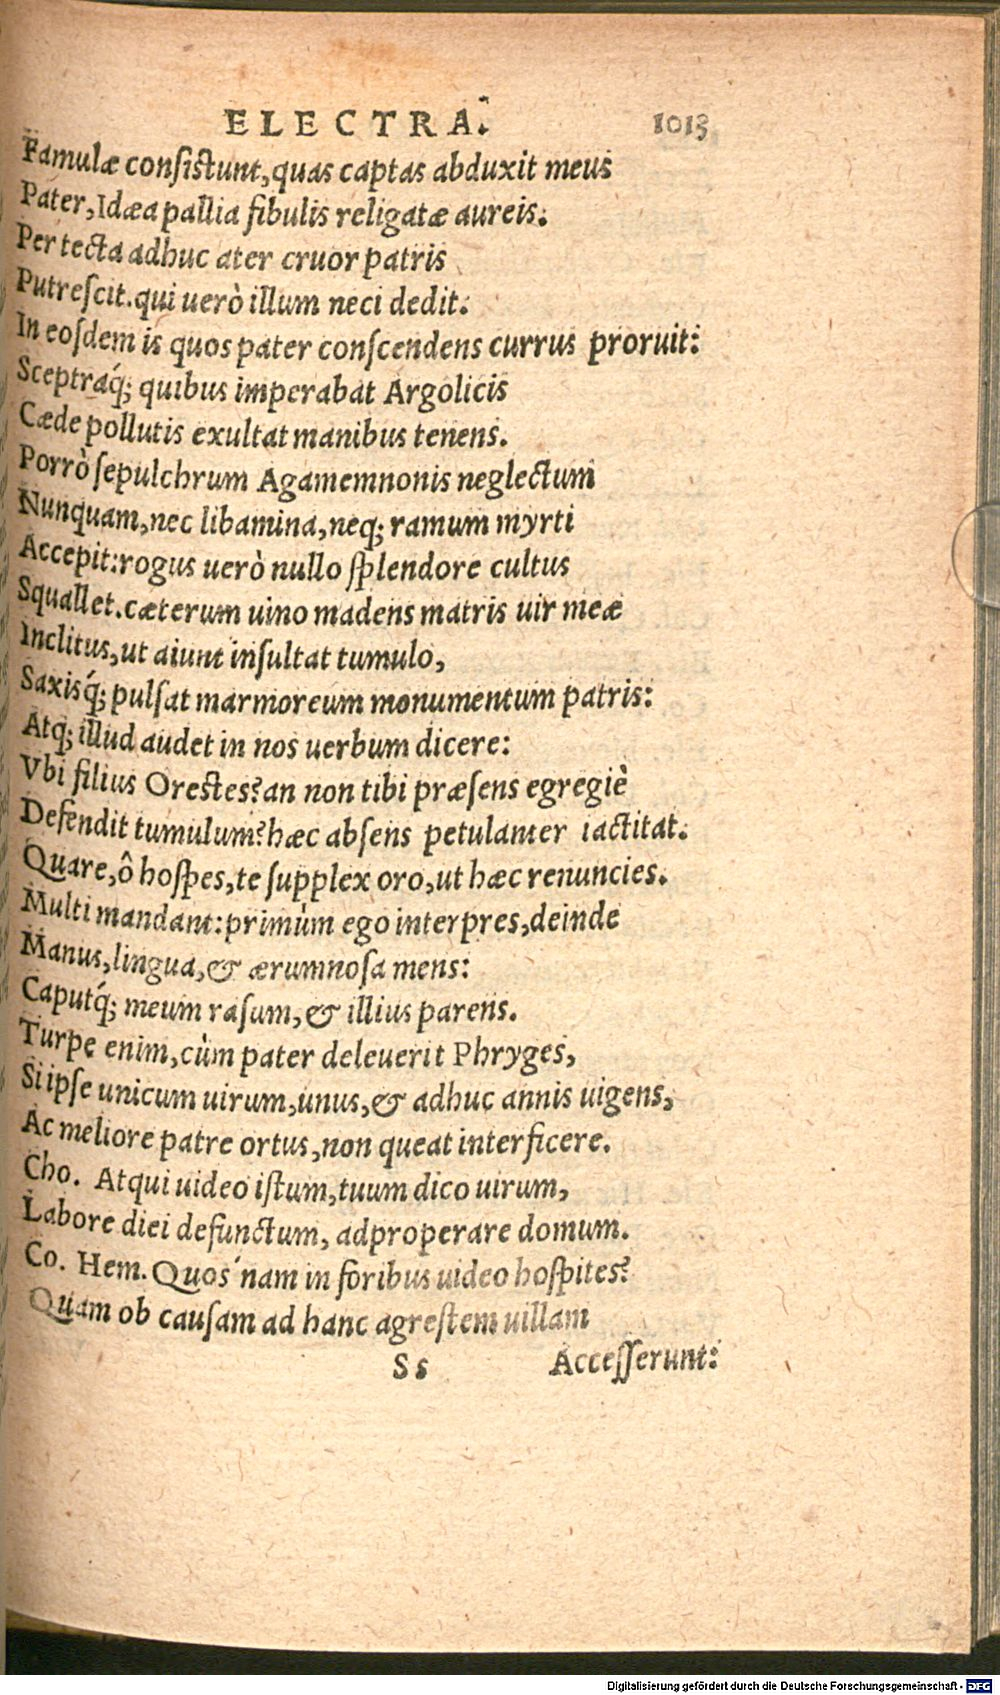 ELECTRA. 1013
Famulæ consistunt, quas captas abduxit meus
Pater, Idæa pallia fibulis religatæ aureis.
Per tecta adhuc ater cruor patris
Putrescit. qui uerò illum neci dedit.
In eosdem is quos pater conscendens currus proruit:
Sceptraq́; quibus imperabat Argolicis
Cæde pollutis exultat manibus tenens.
Porrò sepulchrum Agamemnonis neglectum
Nunquam, nec libamina, neq; ramum myrti
Accepit: rogus uerò nullo splendore cultus
Squallet. cæterum uino madens matris uir meæ
Inclitus, ut aiunt insultat tumulo,
Saxisq́; pulsat marmoreum monumentum patris:
Atq; illud audet in nos uerbum dicere:
Vbi filius Orestes? an non tibi præsens egregiè
Defendit tumulum? hæc absens petulanter iactitat.
Quare, ô hospes, te supplex oro, ut hæc renuncies.
Multi mandant: primùm ego interpres, deinde
Manus, lingua, & ærumnosa mens:
Caputq́; meum rasum, & illius parens.
Turpe enim, cùm pater deleuerit Phryges,
Si ipse unicum uirum, unus, & adhuc annis uigens,
Ac meliore patre ortus, non queat interficere.
Cho. Atqui uideo istum, tuum dico uirum,
Labore diei defunctum, adproperare domum.
Co. Hem. Quos´nam in foribus uideo hospites?
Quam ob causam ad hanc agrestem uillam
Ss Accesserunt:
Digitalisierung gefördert durch die Deutsche Forschungsgemeinschaft - DFG